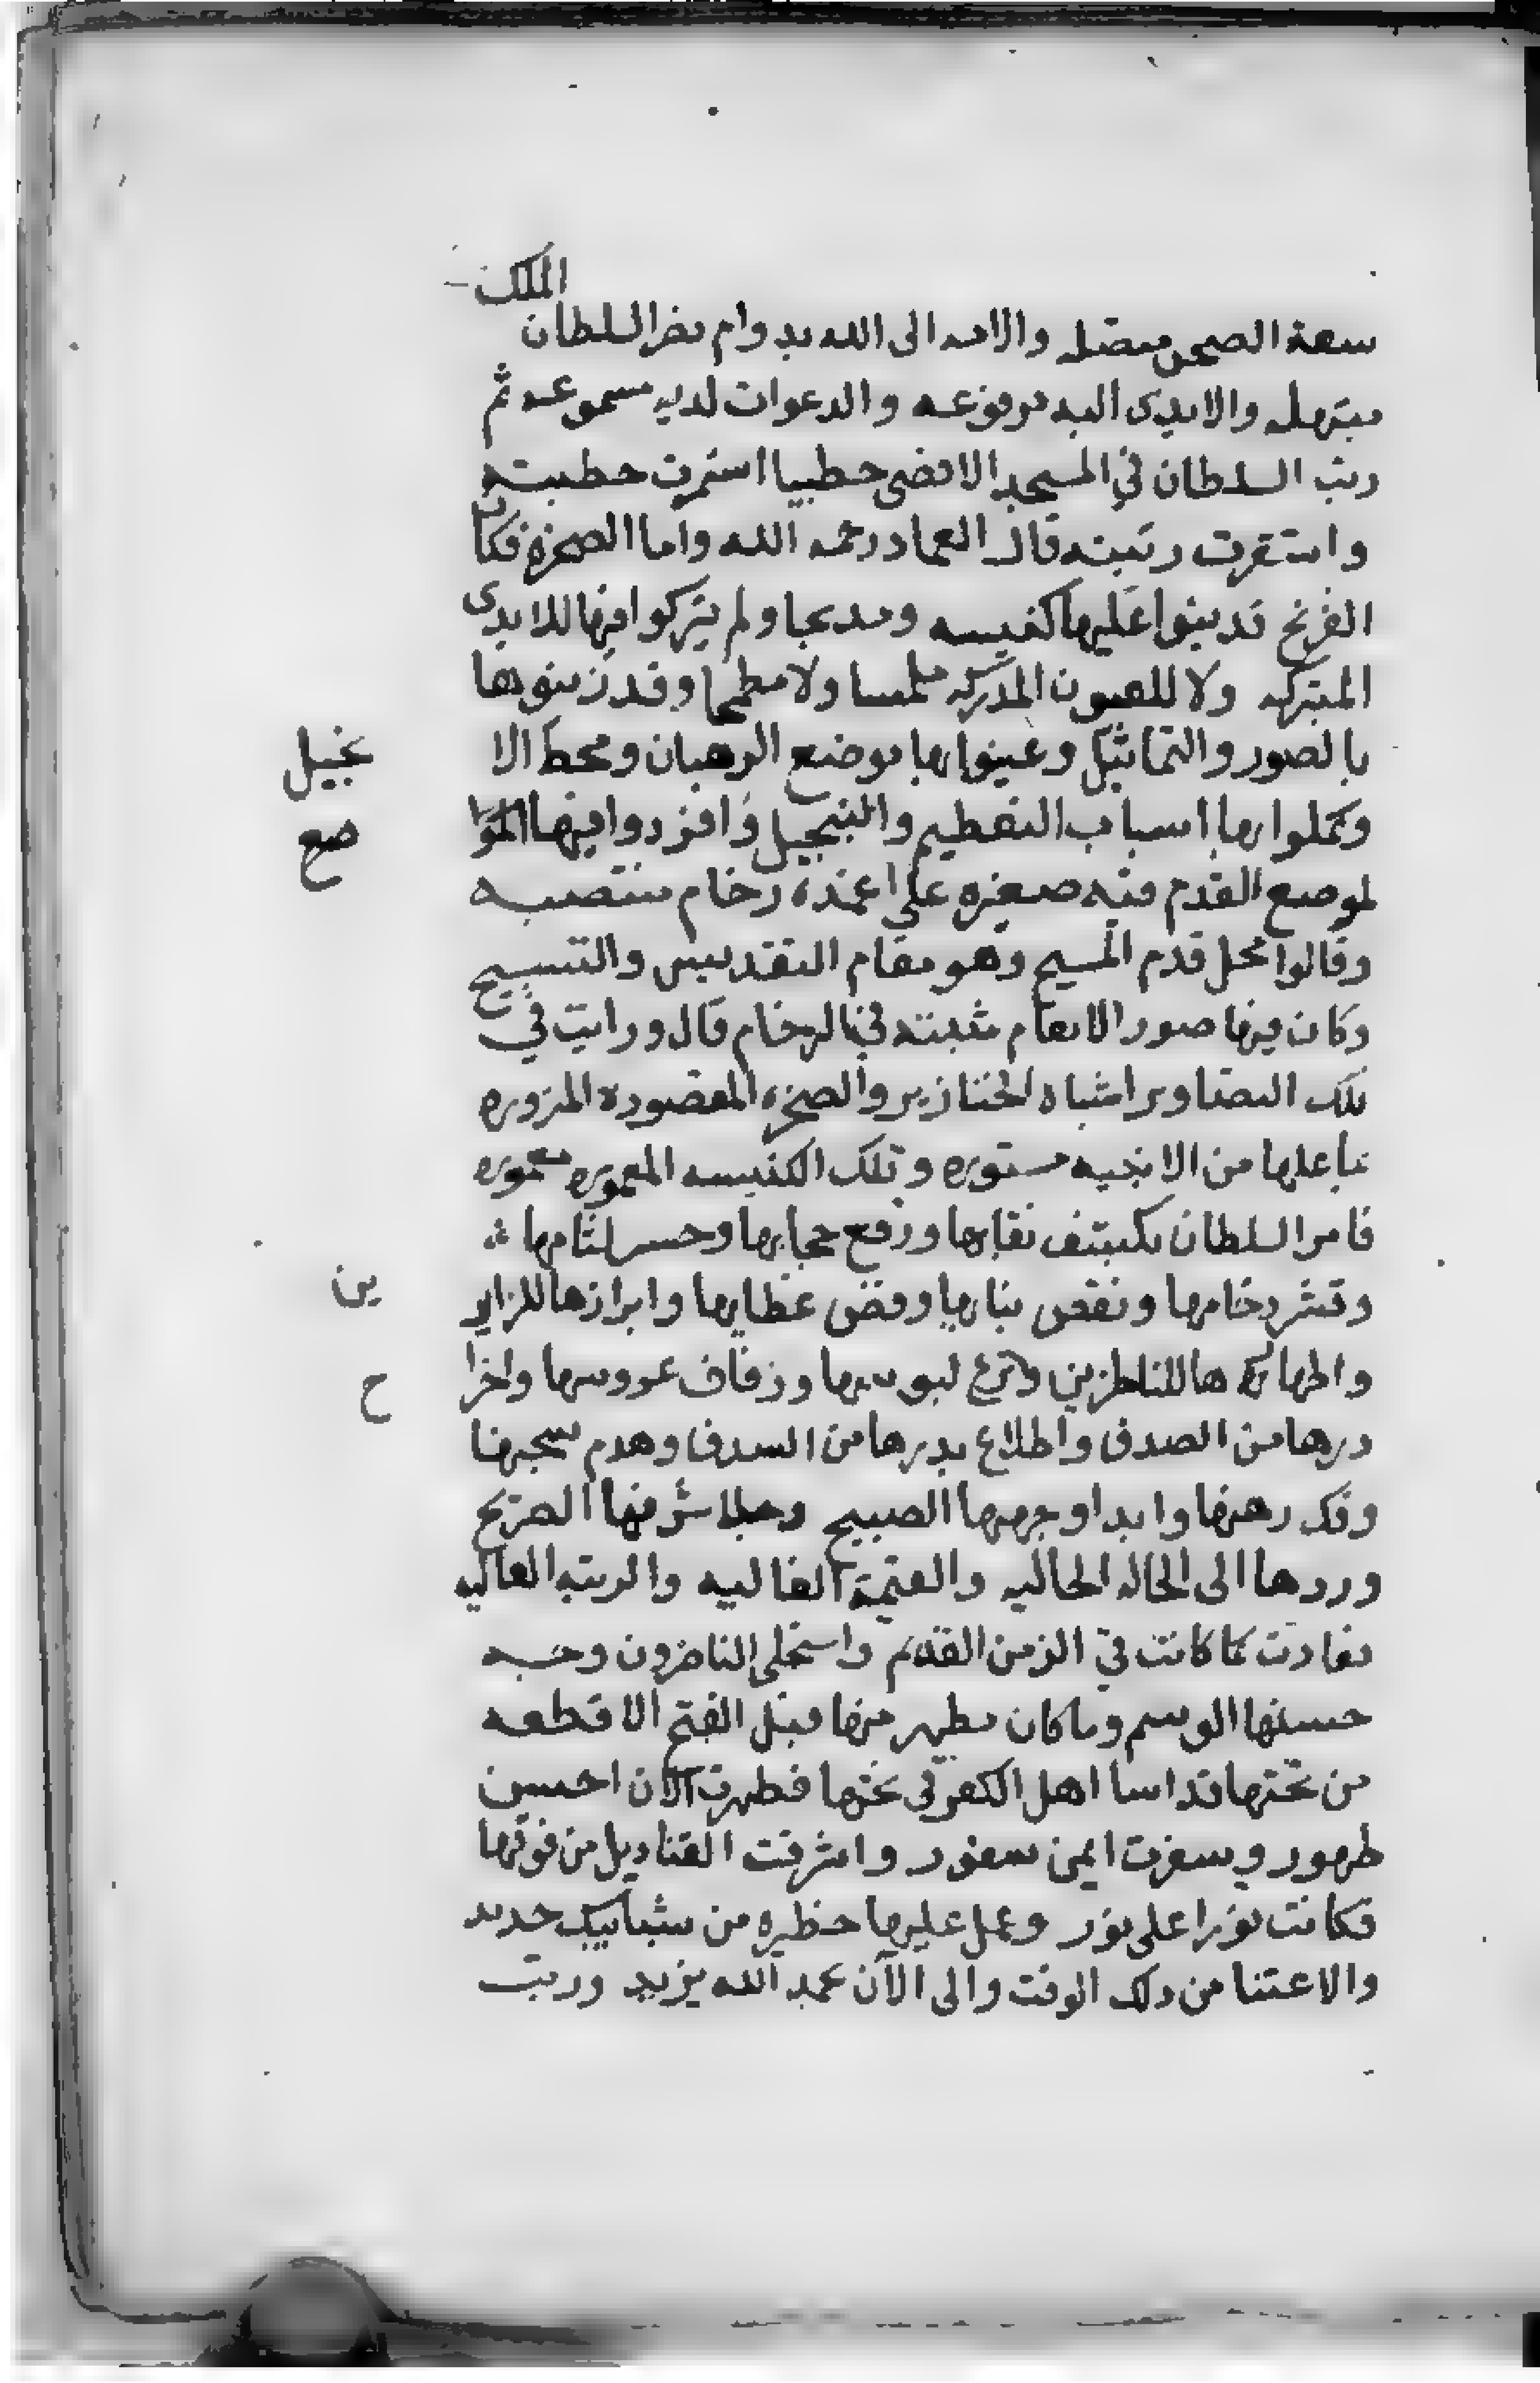 الملك
سعة الصحن متصله والامه الى الله بدوام نصر السلطان
مبتهله والايدى اليه مرفوعه والدعوات لديه مسموعه ثم
رتب السلطان في المسجد الاقصى خطيبا استمرت خطبته
واستقرت رتبته قال العماد رحمه الله واما الصخره فكان
الفرنج قد بنوا عليها كنيسه ومدبحا ولم يتركوا فيها للايدى
المتبركه ولا للعيون المدركه ملمسا ولا مطمحا وقد زينوها
بالصور والتماثيل وعينوا بها موضع الرهبان ومحط الا
نجيل
وكملوا بها اسباب التعظيم والتبجيل وافردوا فيها الموا
ضع
لموضع القدم قبه صغيره على اعمده رخام منتصبه
وقالوا محل قدم المسيح وهو مقام التقديس والتسبيح
وكان فيها صور الانعام مثبته في الرخام قال ورايت في
تلك التصاوير اشباه الخنازير والصخره المقصودة المزوره
بما عليها من الابنيه مستوره وتلك الكنيسه المعموره مغموره
فامر السلطان بكشف نقابها ورفع حجابها وحسر لثامها
وقشر رخامها ونقض بنايها وفض غطايها وابرازها للزاير
ين
واظهارها للناظرين ونزع لبوسها وزفاف عروسها واخرا
ح
درها من الصدف واطلاع بدرها من السدف وهدم سجنها
وفك رهنها وابدا وجهها الصبيح وجلا شرفها الصريح
وردها الى الحاله الحاليه والقيمة الغاليه والرتبه العاليه
فعادت كما كانت في الزمن القديم واستحلى الناضرون وجه
حسنها الوسيم وماكان يظهر منها قبل الفتح الا قطعه
من تحتها قد اسا اهل الكفر في نحتها فظهرت الان احسن
ظهور وسفرت ايمن سفور واشرقت القناديل من فوقها
فكانت نورا على نور وعمل عليها حظيره من شبابيك حديد
والاعتنا من دلك الوقت والى الآن بحمد الله يزيد ورتب